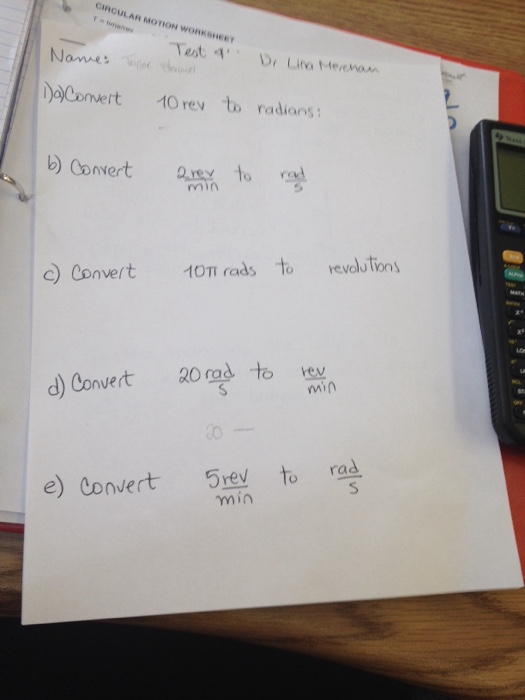 CIRCULAR MOTION WORKSHEET
Test 4
Name:
Dr Lina Merchan
1) a) Convert 10 rev to radians:
b) Convert 2 rev/min to rad/s
c) Convert 10π rads to revolutions
d) Convert 20 rad/s to rev/min
20 —
e) Convert 5 rev/min to rad/s